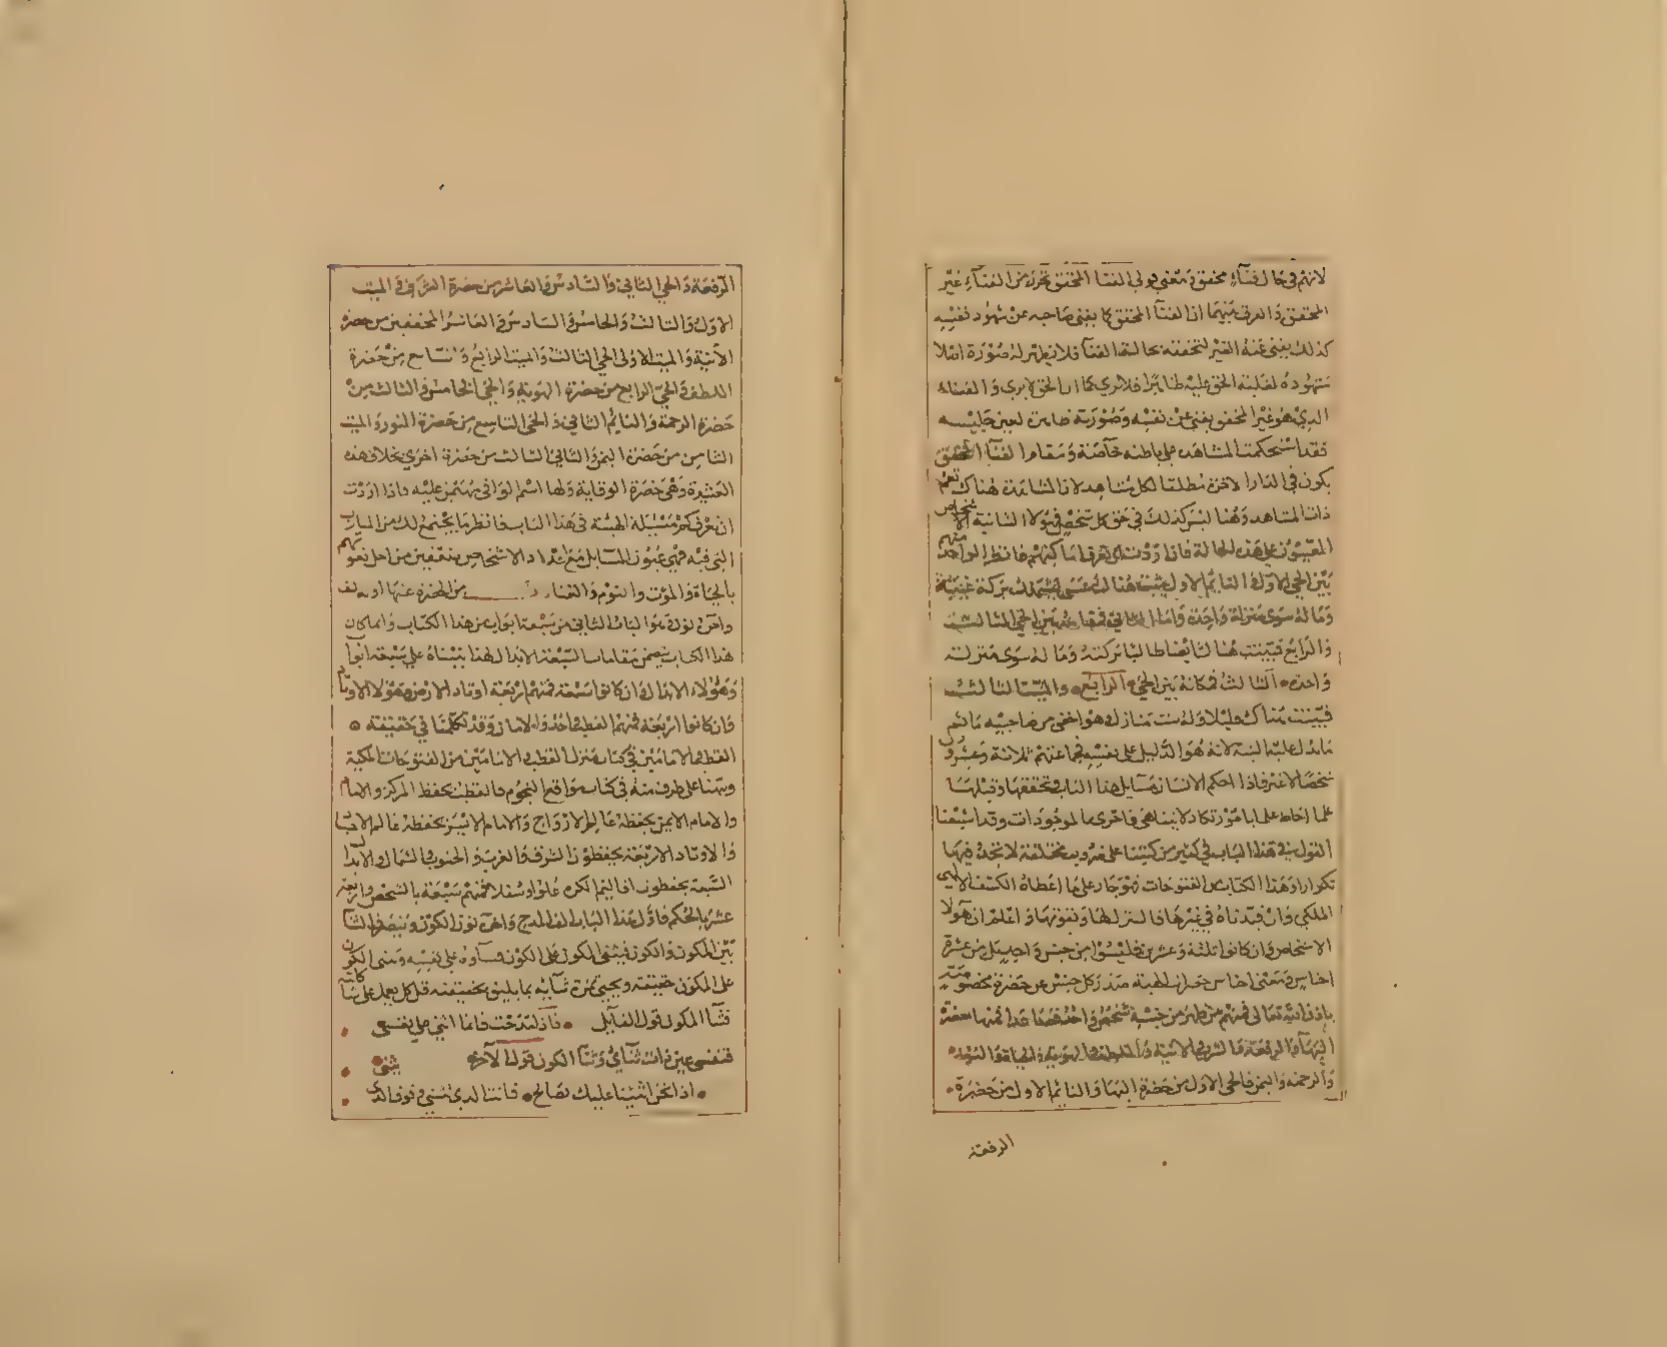 لانهم في حال فنآء محقق ومعنى قولي الفنا المحقق تحرزا من الفنآء غير
المحقق والفرق بينهما ان الفنآ المحقق كما يفنى صاحبه عن شهود نفسه
كذلك يفنى عنه الغير لتحققه بحالة الفنآ فلا يظهر له صورة اصلا
شهوده لغلبة الحق عليه ظاهرا فلا يرى كما ان الحق لا يرى والفناء
الذي هو غير المحقق يفنى عن نفسه وصورته ظاهرة لعين جليسه
فقد استحكمت المشاهد على باطنه خاصة ومقام الفنآ المحقق
يكون في الدار الاخرة مطلقا لكل مشاهد لان المشاهدة هناك تعم
ذات المشاهد وهنا ليس كذلك في حق كل شخص فهولا الثانية الاشخاص
المعينون على هذه الحالة فاذا اردت ان تعرف اماكنهم فانظر الواحد منهم
بين الحي الاول والقائم الاول
وما له سوى منزلة واحدة واما الثاني فمقامه بين الحي الثالث
والرابع فتثبت هنالك ايضا طالبا بركته وما له سوى منزلة
واحدة الثالث فمكانه بين الحي الرابع والميت الثالث
فتثبت هناك قليلا وله ست منازل وهو اخفى من صاحبيه ما ثم
ما يدل عليه البتة لانه هو الدليل على نفسه فجماعتهم ثلاثة وعشرون
شخصا لا غير فاذا احكم الانسان مسايل هذا الباب وتحققها وقبلها
علما احاط علما بامور تكاد لا تتناهى في اخرى بالموجودات وقد اشبعنا
القول في هذا الباب في كثير من كتبنا على ضروب مختلفة لا تجد فيها
تكرارا وهذا الكتاب من الفتوحات فهو جار على ما اعطاه الكشف الالهي
الملكي وان قيدناه في غيرها فالمنزل لها ونفوتها واعلم ان هولا
الاشخاص وان كانوا ثلثة وعشرين فليسوا من جنس واحد بل من عشرة
اجناس ومعنى اجناس حضرات الهية صدر كل جنس عن حضرة مخصوصة
باذن الله تعالى فمنهم من ظهر من جنسه شخص واحد فصاعدا فمنها حضرة
البهآ والرفعة والشرف والانية واللطف والهوية والحياة والنور
والرحمة واليمن فالحي الاول من حضرة البها والنائم الاول من حضرة
الرفعة
الرفعة والحي الثاني والسادس والعاشر من حضرة الشرف والميت
الاول والثالث والخامس والسادس والعاشر المحققين من حضرة
الانية والميت الاول الحي الثالث والميت الرابع والتاسع من حضرة
اللطف والحي الرابع من حضرة الهوية والحي الخامس والثالث من
حضرة الرحمة والنايم الثاني والحي التاسع من حضرة النور والميت
الثامن من حضرة اليمن والثاني الثالث من حضرة اخرى بخلاف هذه
العشرة وهي حضرة الوقاية ولها اسم الواقي يهتمن عليه فاذا اردت
ان تعرف كم مسئلة الهية في هذا الباب فانظر ما يجتمع لك من المسايل
التي فيه فهي عيون المسايل مع عداد الاشخاص من اهل نعوتهم
بالحياة والموت والنوم والفناء من الحضرة عنها
واخرى نون هو الباب الثاني من سبعة ابواب من هذا الكتاب ولما كان
هذا الكتاب يتضمن مقامات السبعة الابدال لهذا بنيناه على سبعة ابواب
وهؤلاء الابدال وان كانوا سبعة فمنهم اربعة اوتاد الارض وهولا الاوتاد
وان كانوا اربعة فمنهم القطب واحد والامامان وقد تكلمنا في حقيقة
القطب والامامين في كتاب منزل القطب والامامين من الفتوحات المكية
ونبهنا على طرف منه في كتاب مواقع النجوم فالقطب يحفظ المركز والامام
والامام الايمن يحفظ عالم الارواح والامام الايسر يحفظ عالم الاجسا
والاوتاد الاربعة يحفظون الشرق والغرب والجنوب والشمال والابدال
السبعة يحفظون اقاليم الكرة علوا وسفلا فمنهم سبعة بالشخص واربعة
عشر بالحكم فاول هذا الباب الف المدح واخره نون الكون ونيصفه الثنا
بين المكون والكون فيثنى المكون على الكون وثنآوه على نفسه ومثنى الكون
على المكون حقيقة ويجتني ثمرة ثنآيه بما يليق بحقيقته قل كل يعمل على شاكلته
ثنآ المكون قول القآيل فاذا مدحت فانما اثني على نفسي
فنفسي عين ذات ثنآي وثنآ الكون قول الآخر يثنى
اذا نحن اثنينا عليك بصالح فانت الذي نثني وفوق الذي